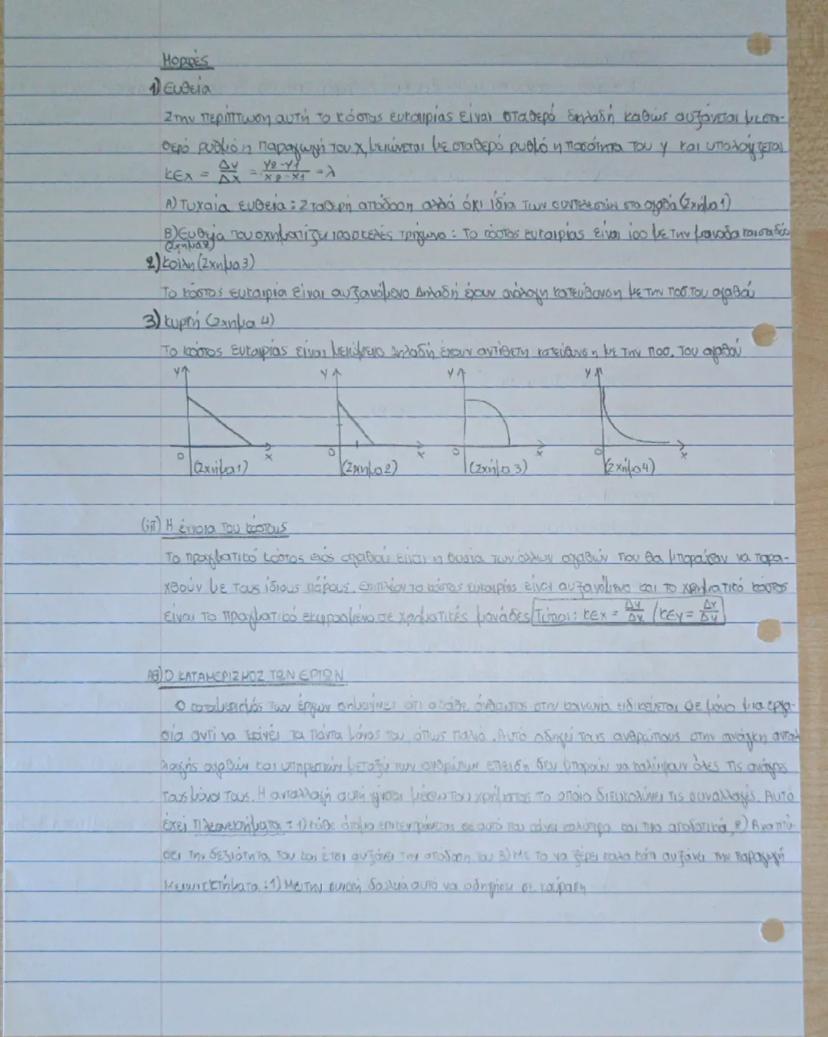 Μορφές
1) Ευθεία
Στην περίπτωση αυτή το κόστος ευκαιρίας είναι σταθερό δηλαδή καθώς αυξάνεται με στα-
θερό ρυθμό η παραγωγή του χ, μειώνεται με σταθερό ρυθμό η ποσότητα του y και υπολογίζεται
ΚΕx = Δy/Δx = y2-y1/x2-x1 = λ
Α) Τυχαία ευθεία: Σταθερή απόδοση αλλά όχι ίδια των συντελεστών στα αγαθά (Σχήμα 1)
Β) Ευθεία που σχηματίζει ισοσκελές τρίγωνο: Το κόστος ευκαιρίας είναι ίσο με την μονάδα και
(Σχήμα 2)
2) Κοίλη (Σχήμα 3)
Το κόστος ευκαιρία είναι αυξανόμενο δηλαδή έχουν ανάλογη κατεύθυνση με την ποσ του αγαθού
3) Κυρτή (Σχήμα 4)
Το κόστος ευκαιρίας είναι δηλαδή έχουν αντίθετη κατεύθυνση με την ποσ. του αγαθού
y y y y
0 x 0 x 0 x 0 x
(Σχήμα 1) (Σχημα 2) (Σχήμα 3) (Σχήμα 4)
(iii) Η έννοια του κόστους
Το πραγματικό κόστος ενός αγαθού είναι η θυσία των άλλων αγαθών που θα μπορούσαν να παρα-
χθούν με τους ίδιους πόρους. επιπλέον το κόστος ευκαιρίας είναι αυξανόμενο και το χρηματικό κόστος
είναι το πραγματικό εκφρασμένο σε χρηματικές μονάδες Τύποι: ΚΕx = Δy/Δx / ΚΕy = Δx/Δy
Ο ΚΑΤΑΜΕΡΙΣΜΟΣ ΤΩΝ ΕΡΓΩΝ
Ο καταμερισμός των έργων σημαίνει ότι ο κάθε άνθρωπος στην κοινωνία ειδικεύεται σε μόνο μια εργα-
σία αντί να κάνει τα πάντα μόνος του, όπως παλιά. Αυτό οδηγεί τους ανθρώπους στην ανάγκη ανταλ-
λαγής αγαθών και υπηρεσιών μεταξύ των ανθρώπων επειδή δεν μπορούν να καλύψουν όλες τις ανάγκες
τους μόνοι τους. Η ανταλλαγή αυτή γίνεται μέσω του χρήματος το οποίο διευκολύνει τις συναλλαγές. Αυτό
έχει Πλεονεκτήματα: 1) κάθε άτομο επικεντρώνεται σε αυτό που κάνει καλύτερα και πιο αποδοτικά, 2) Αναπτύ-
σει την δεξιότητα του και έτσι αυξάνει την απόδοση του 3) Με το να ξέρει καλά κάτι αυξάνει την παραγωγή
Μειονεκτήματα: 1) Με την συνεχή δουλειά αυτό να οδηγήσει σε κούραση